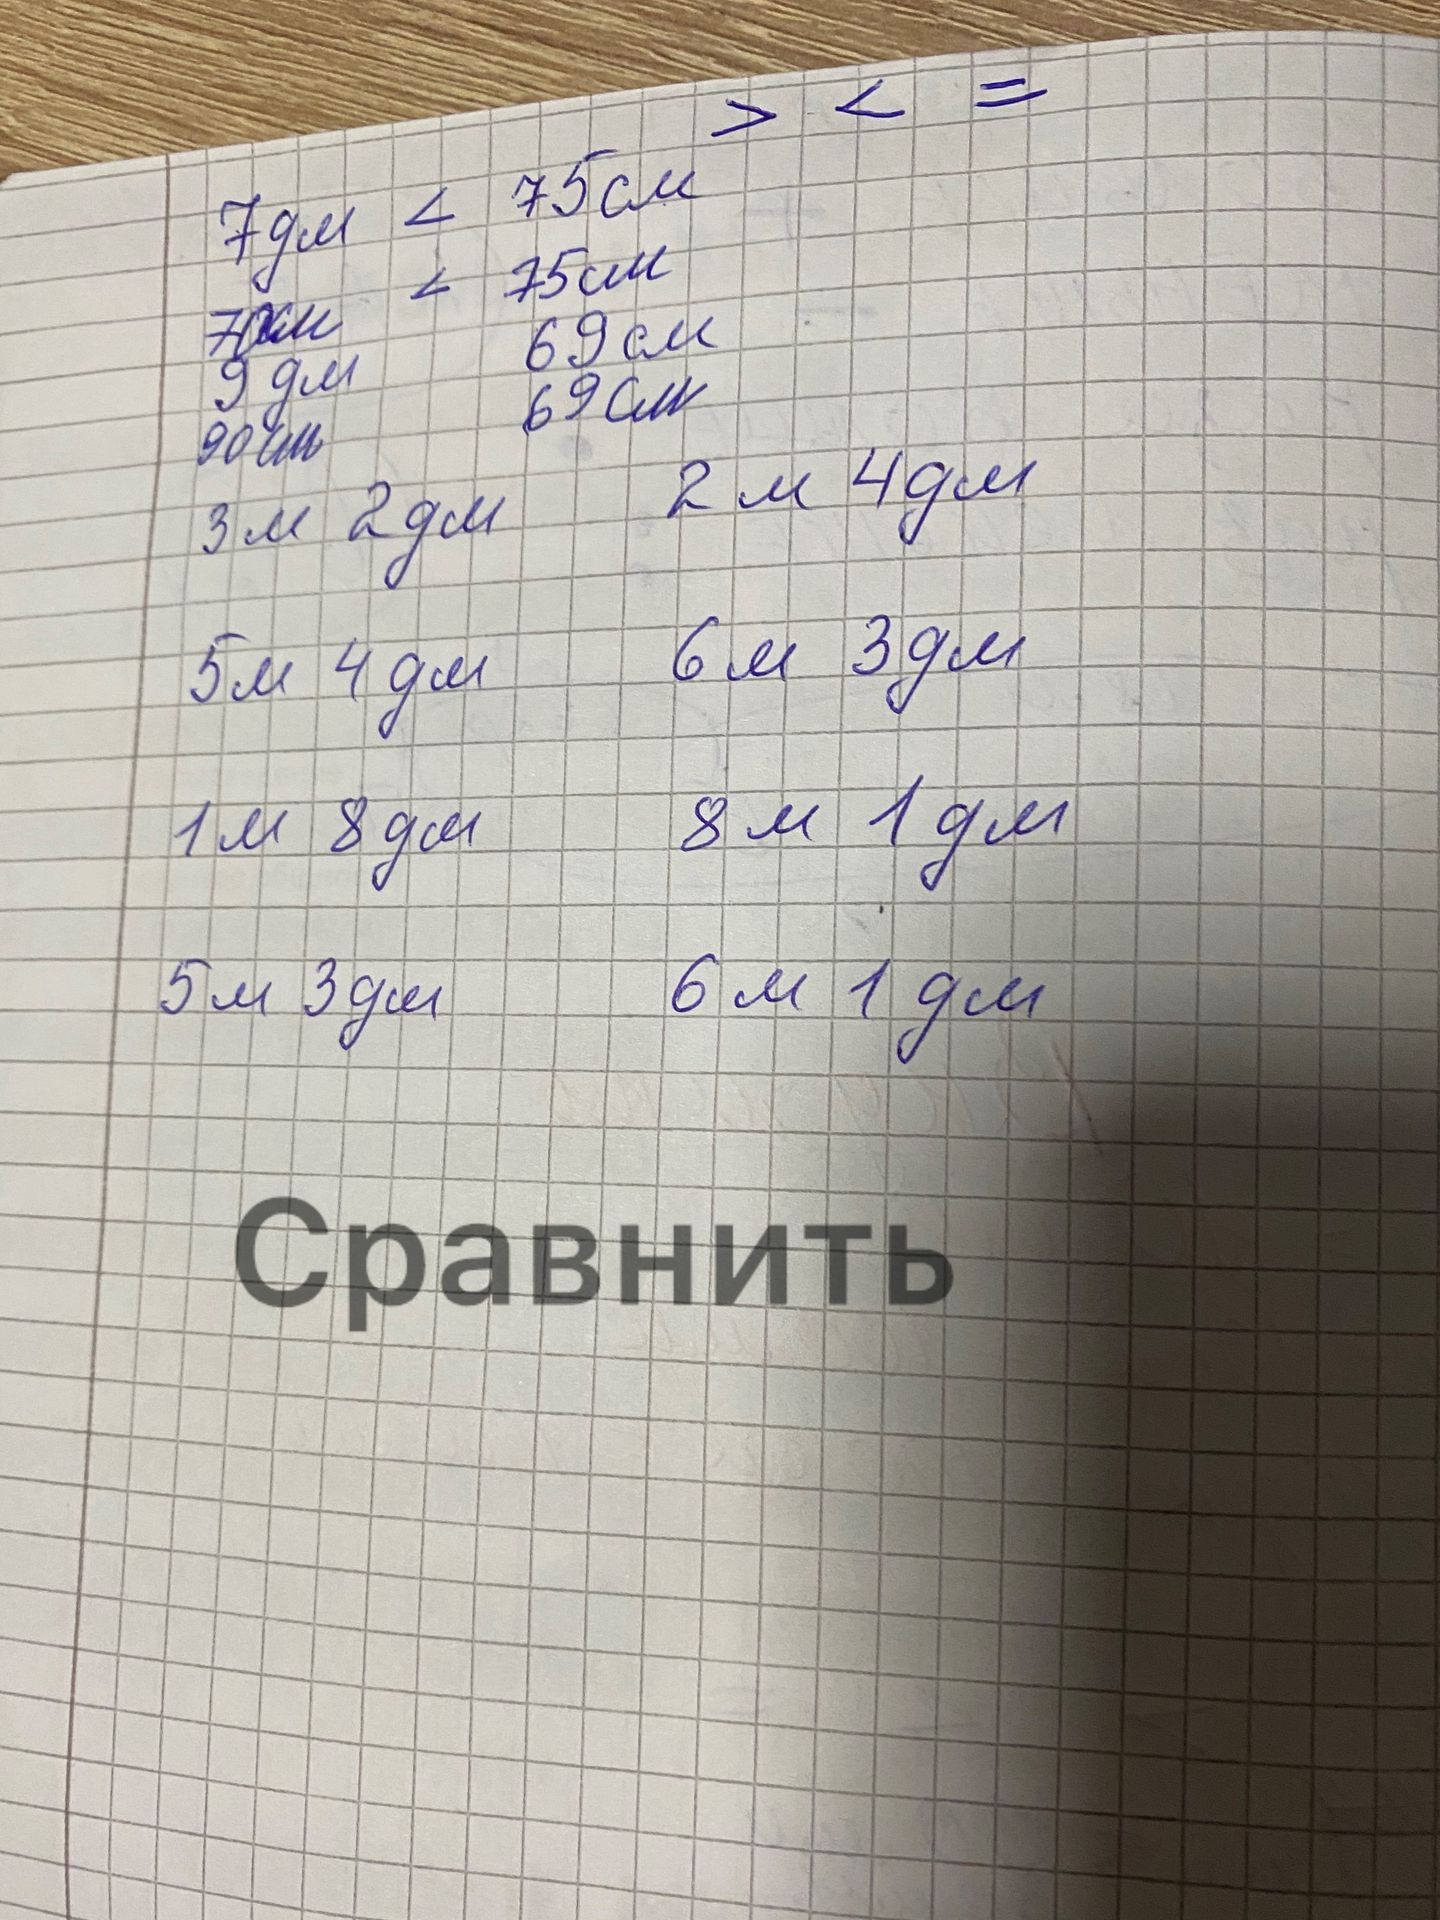 > < =
7дм < 75см
70см < 75см
9дм 69см
90см 69см
3м 2дм 2м 4дм
5м 4дм 6м 3дм
1м 8дм 8м 1дм
5м 3дм 6м 1дм
Сравнить